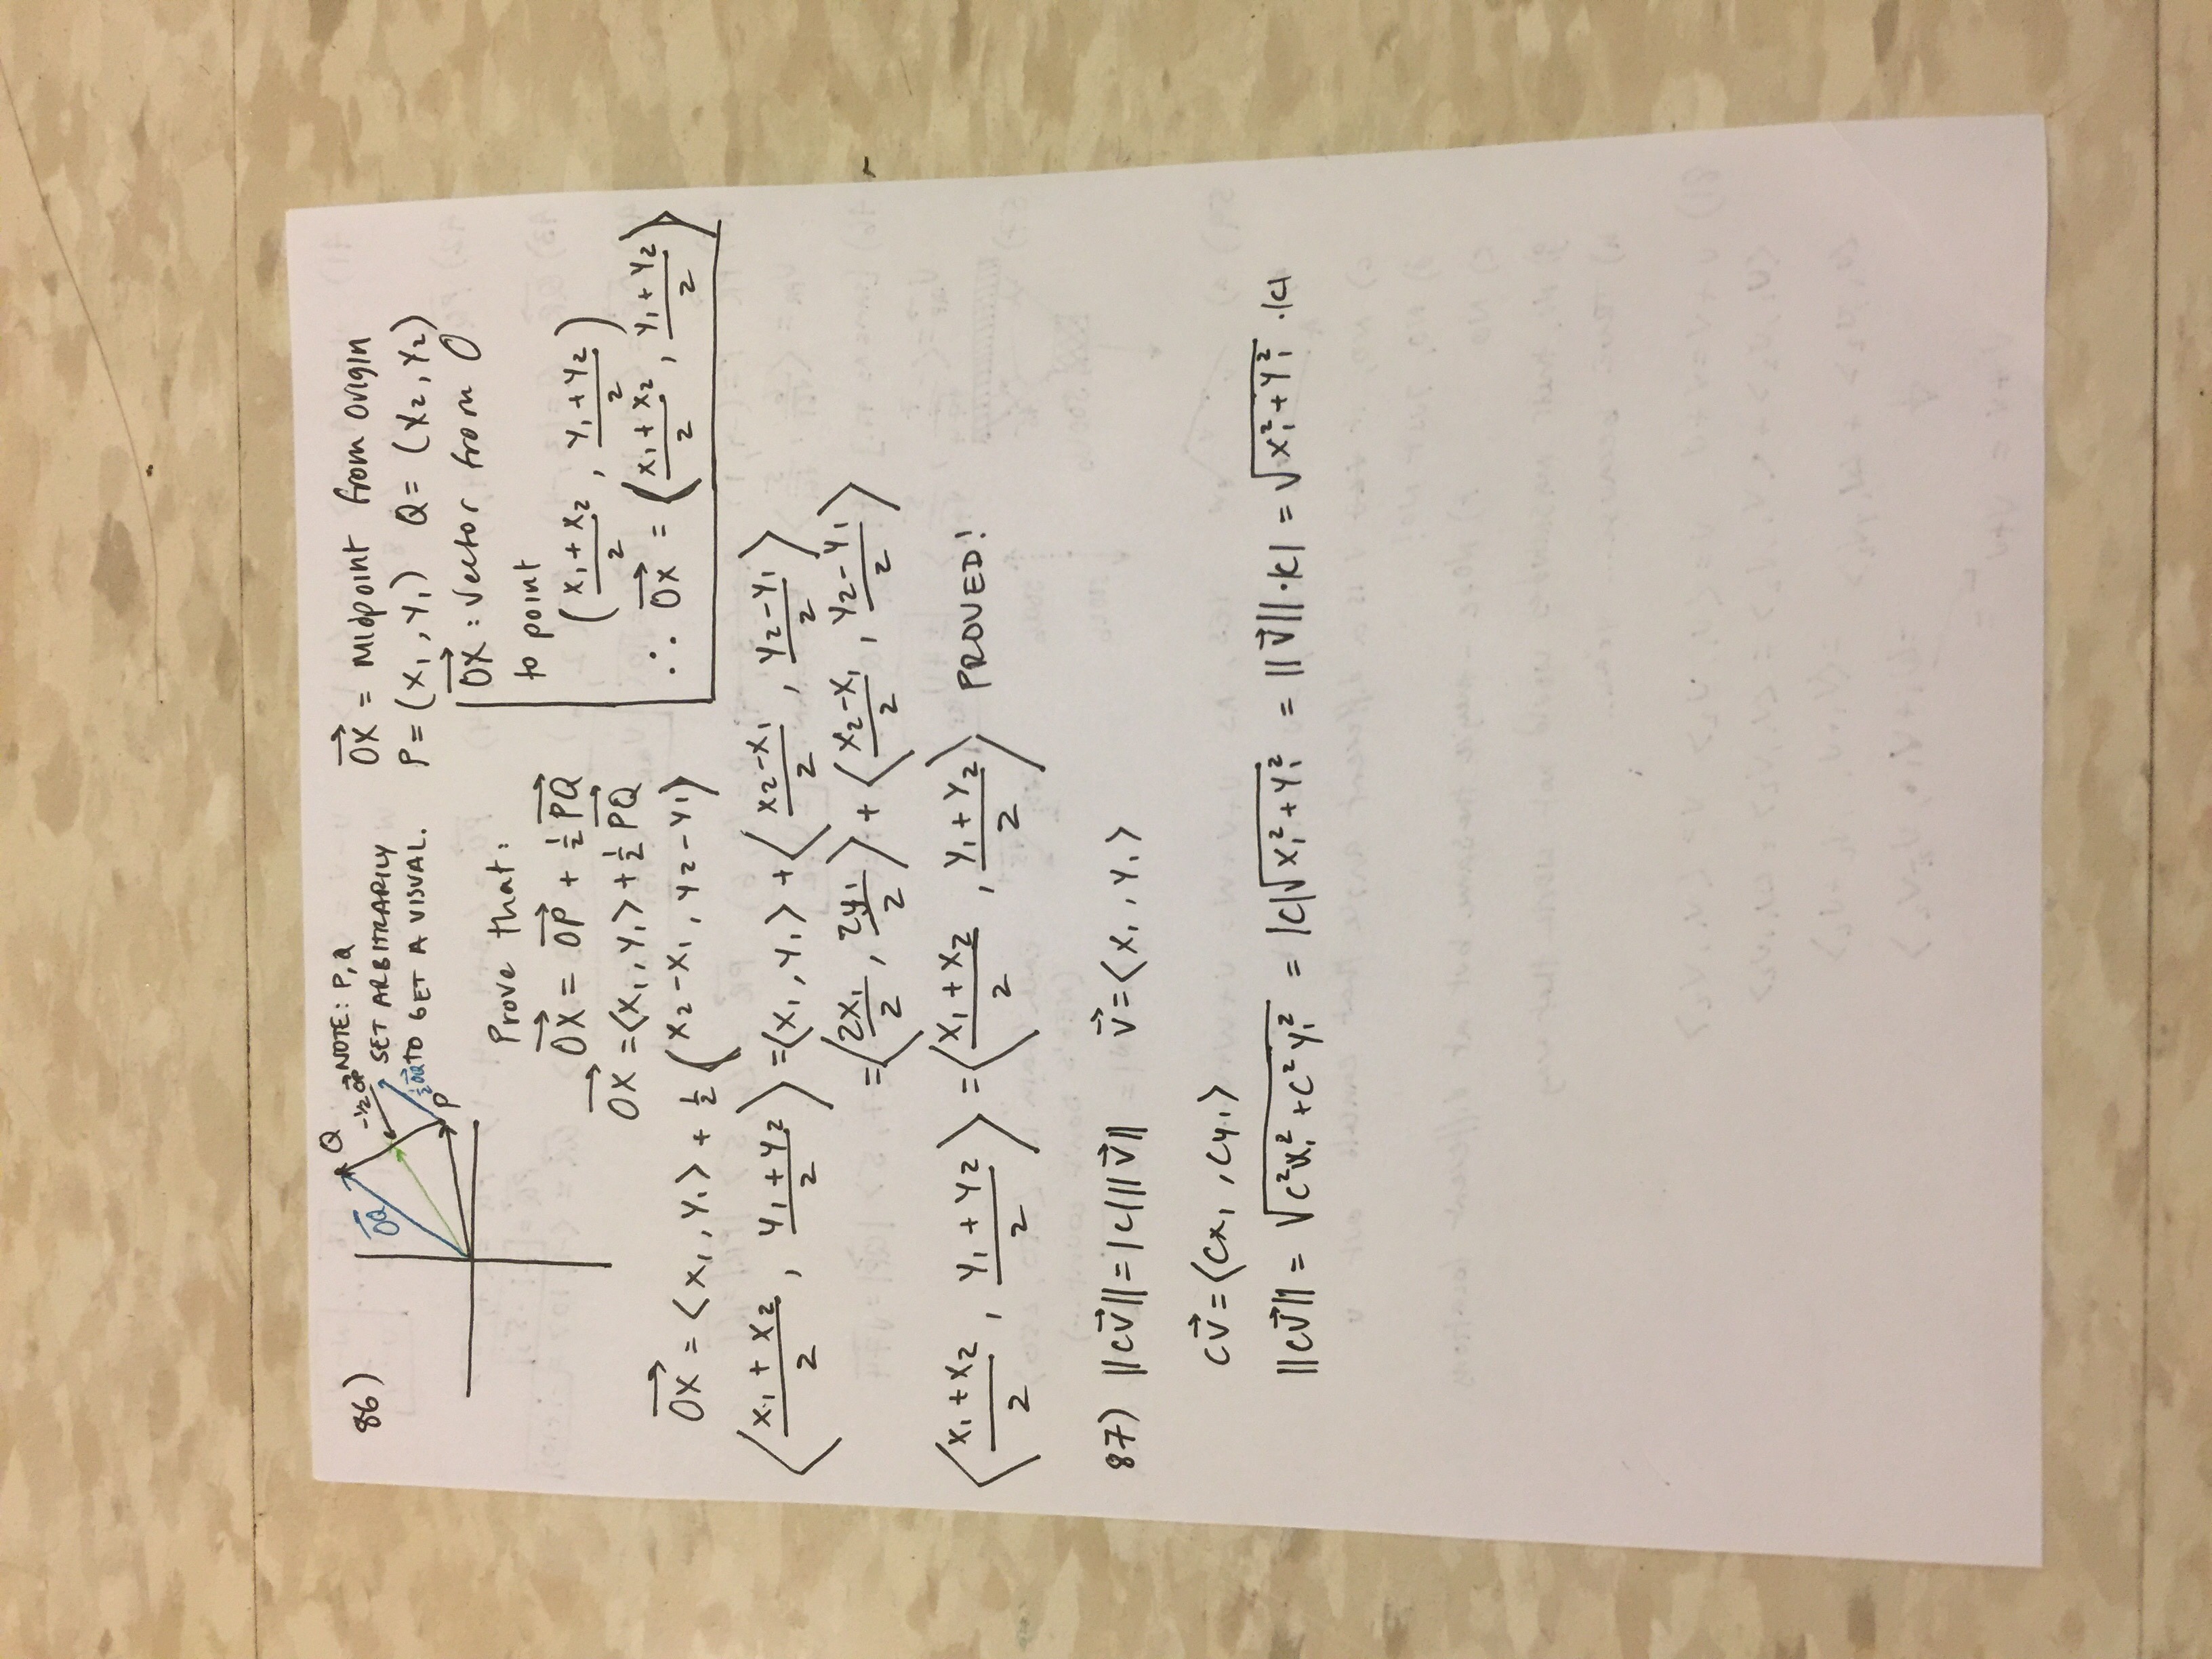 86)
Q
OQ
-½ OP
½ OQ
P
NOTE: P, Q
SET ARBITRARILY
TO GET A VISUAL.
OX = Midpoint from origin
P = (x₁, y₁) Q = (x₂, y₂)
OX : Vector from O
to point
((x₁ + x₂)/2, (y₁ + y₂)/2)
∴ OX = ⟨(x₁ + x₂)/2, (y₁ + y₂)/2⟩
Prove that:
OX = OP + ½ PQ
OX = ⟨x₁, y₁⟩ + ½ PQ
OX = ⟨x₁, y₁⟩ + ½ ⟨x₂ - x₁, y₂ - y₁⟩
⟨(x₁ + x₂)/2, (y₁ + y₂)/2⟩ = ⟨x₁, y₁⟩ + ⟨(x₂ - x₁)/2, (y₂ - y₁)/2⟩
= ⟨2x₁/2, 2y₁/2⟩ + ⟨(x₂ - x₁)/2, (y₂ - y₁)/2⟩
⟨(x₁ + x₂)/2, (y₁ + y₂)/2⟩ = ⟨(x₁ + x₂)/2, (y₁ + y₂)/2⟩ PROVED!
87) ||cv⃗|| = |c| ||v⃗|| v⃗ = ⟨x₁, y₁⟩
cv⃗ = ⟨cx₁, cy₁⟩
||cv⃗|| = √(c²x₁² + c²y₁²) = |c|√(x₁² + y₁²) = ||v⃗||·|c| = √(x₁² + y₁²) ·|c|